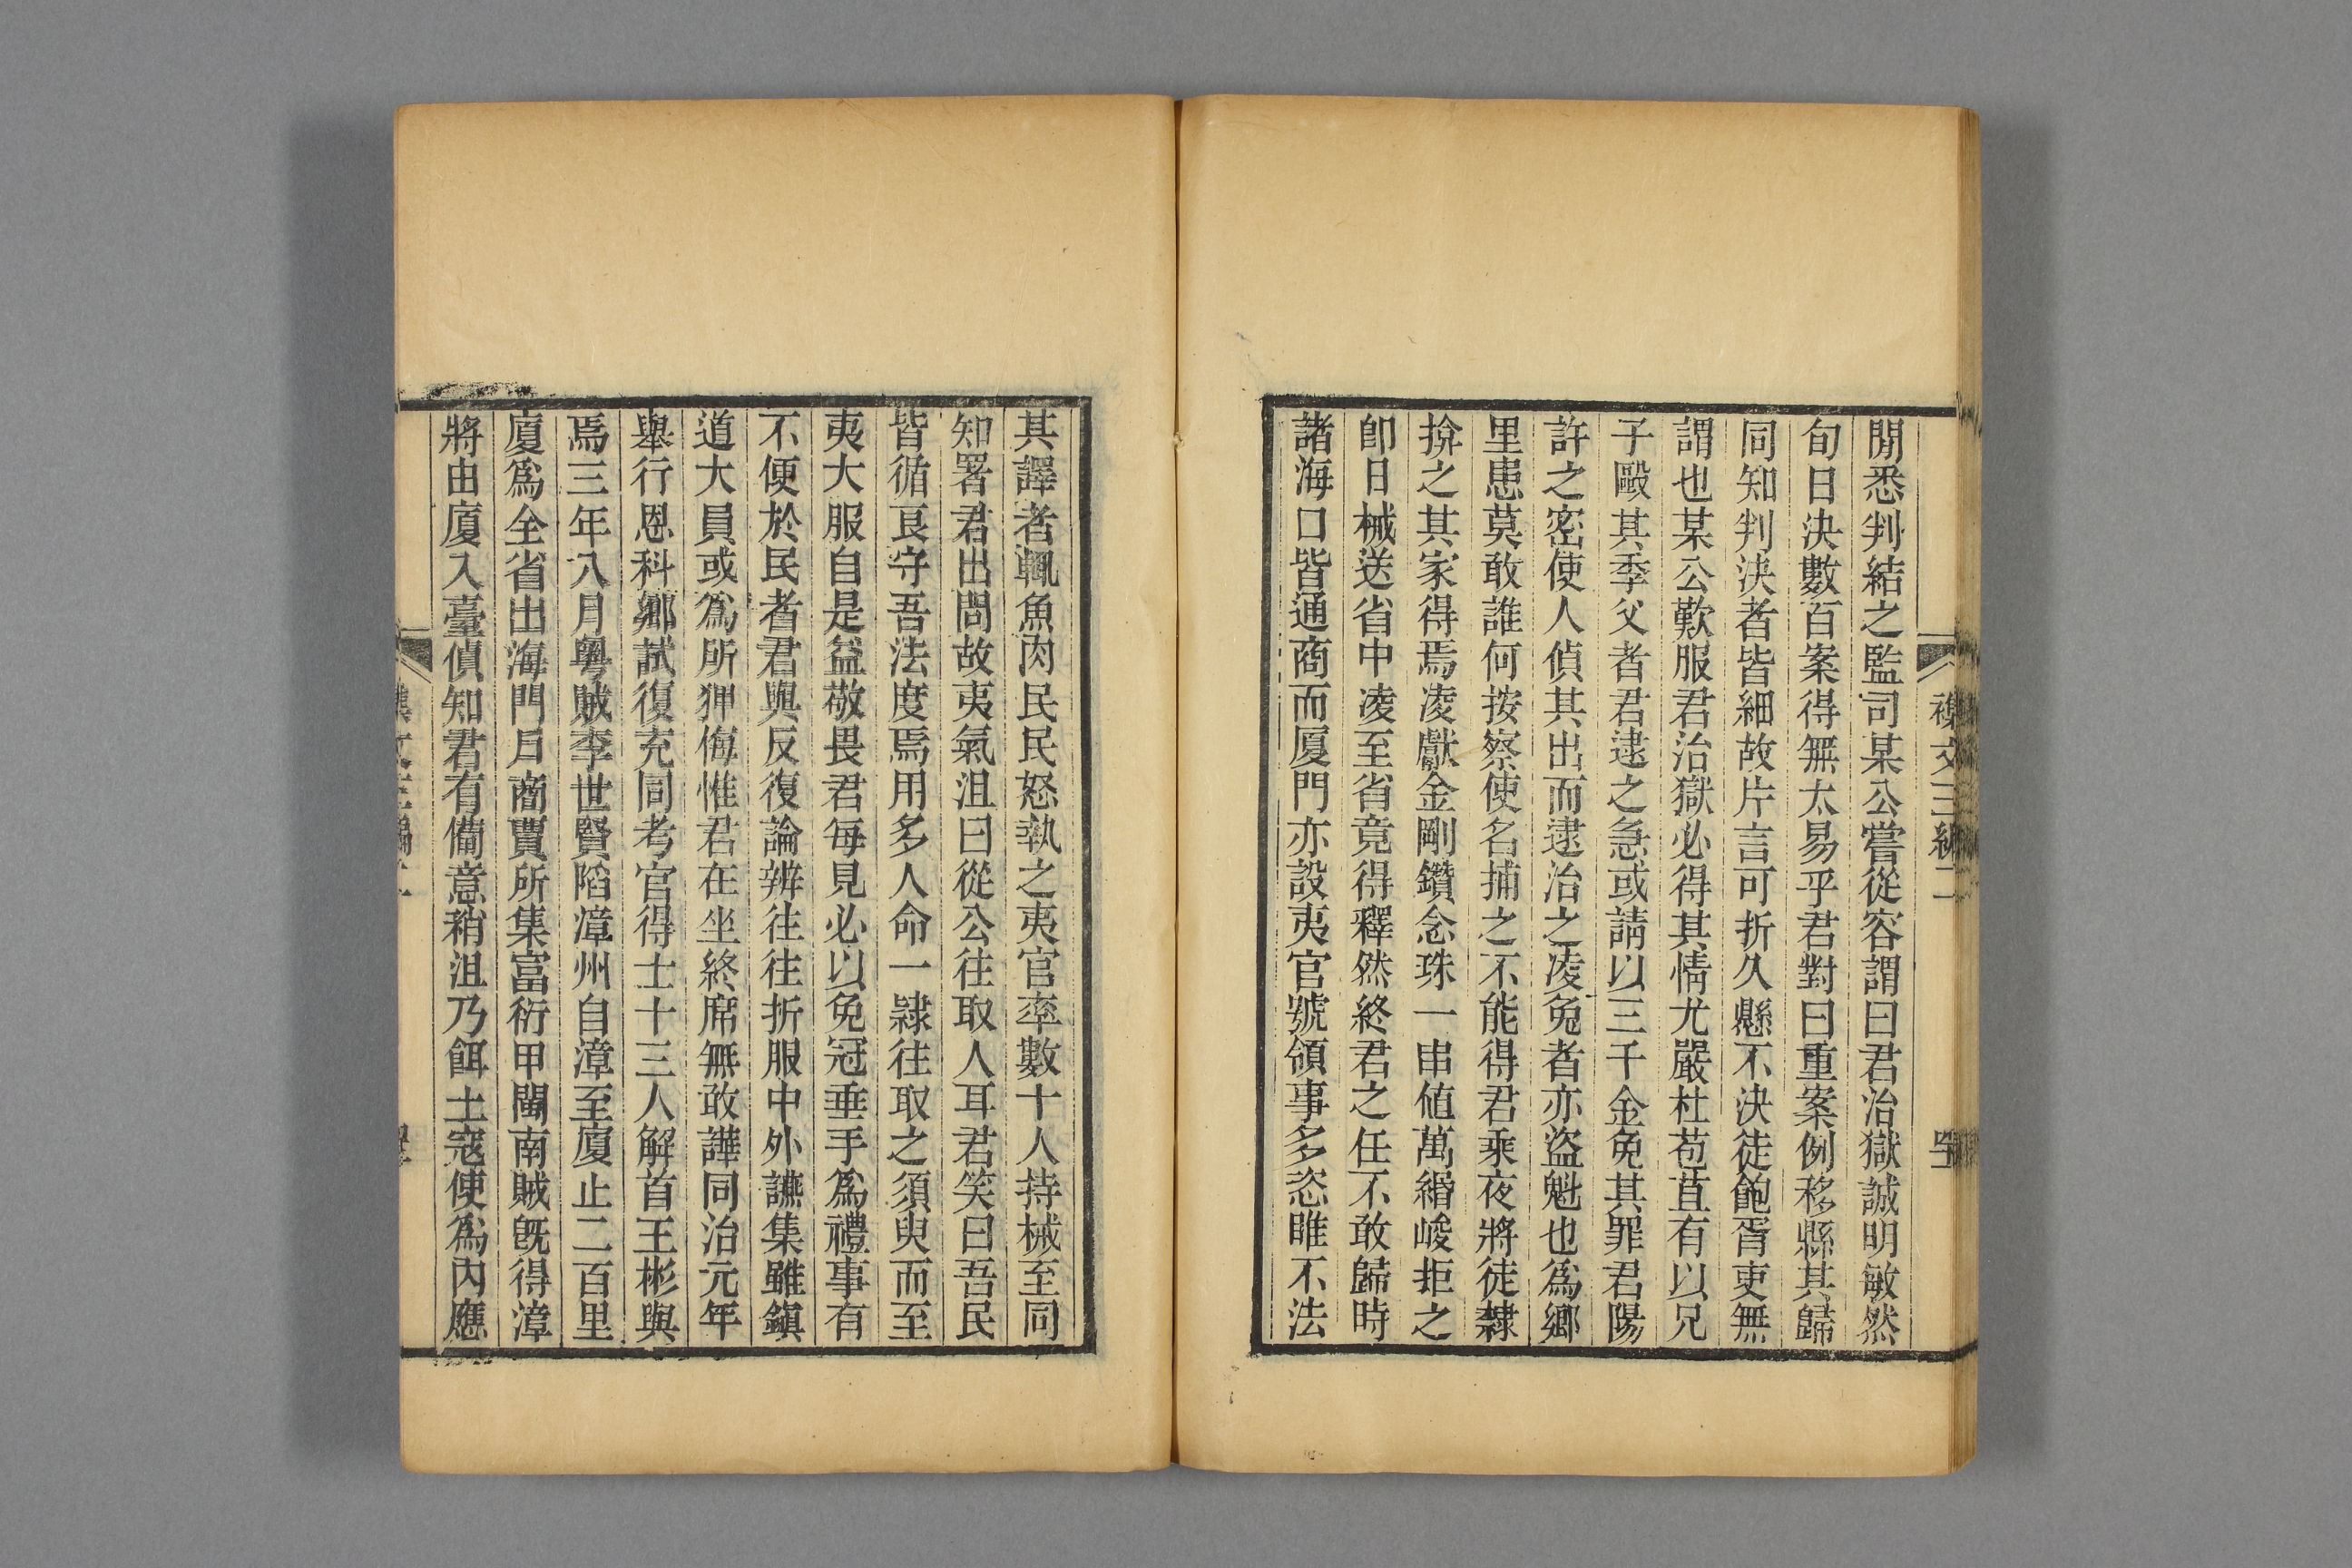 閒悉判結之監司某公嘗從容謂曰君治獄誠明敏然
旬日決數百案得無太易乎君對曰重案例移縣其歸
同知判決者皆細故片言可折久懸不決徒飽胥吏無
謂也某公歎服君治獄必得其情尤嚴杜苞苴有以兄
子毆其季父者君逮之急或請以三千金免其罪君陽
許之密使人偵其出而逮治之凌兔者亦盜魁也爲鄉
里患莫敢誰何按察使名捕之不能得君乘夜將徒隸
揜之其家得焉凌獻金剛鑽念珠一串値萬緡峻拒之
卽日械送省中凌至省竟得釋然終君之任不敢歸時
諸海口皆通商而厦門亦設夷官號領事多恣睢不法
其譯者輒魚肉民民怒執之夷官率數十人持械至同
知署君出問故夷氣沮曰從公往取人耳君笑曰吾民
皆循良守吾法度焉用多人命一隷往取之須臾而至
夷大服自是益敬畏君每見必以免冠垂手爲禮事有
不便於民者君與反復論辨往往折服中外讌集雖鎭
道大員或爲所狎侮惟君在坐終席無敢譁同治元年
舉行恩科鄉試復充同考官得士十三人解首王彬與
焉三年八月粵賊李世賢陷漳州自漳至廈止二百里
廈爲全省出海門戶商賈所集富衍甲閩南賊旣得漳
將由廈入臺偵知君有備意稍沮乃餌土寇使爲內應